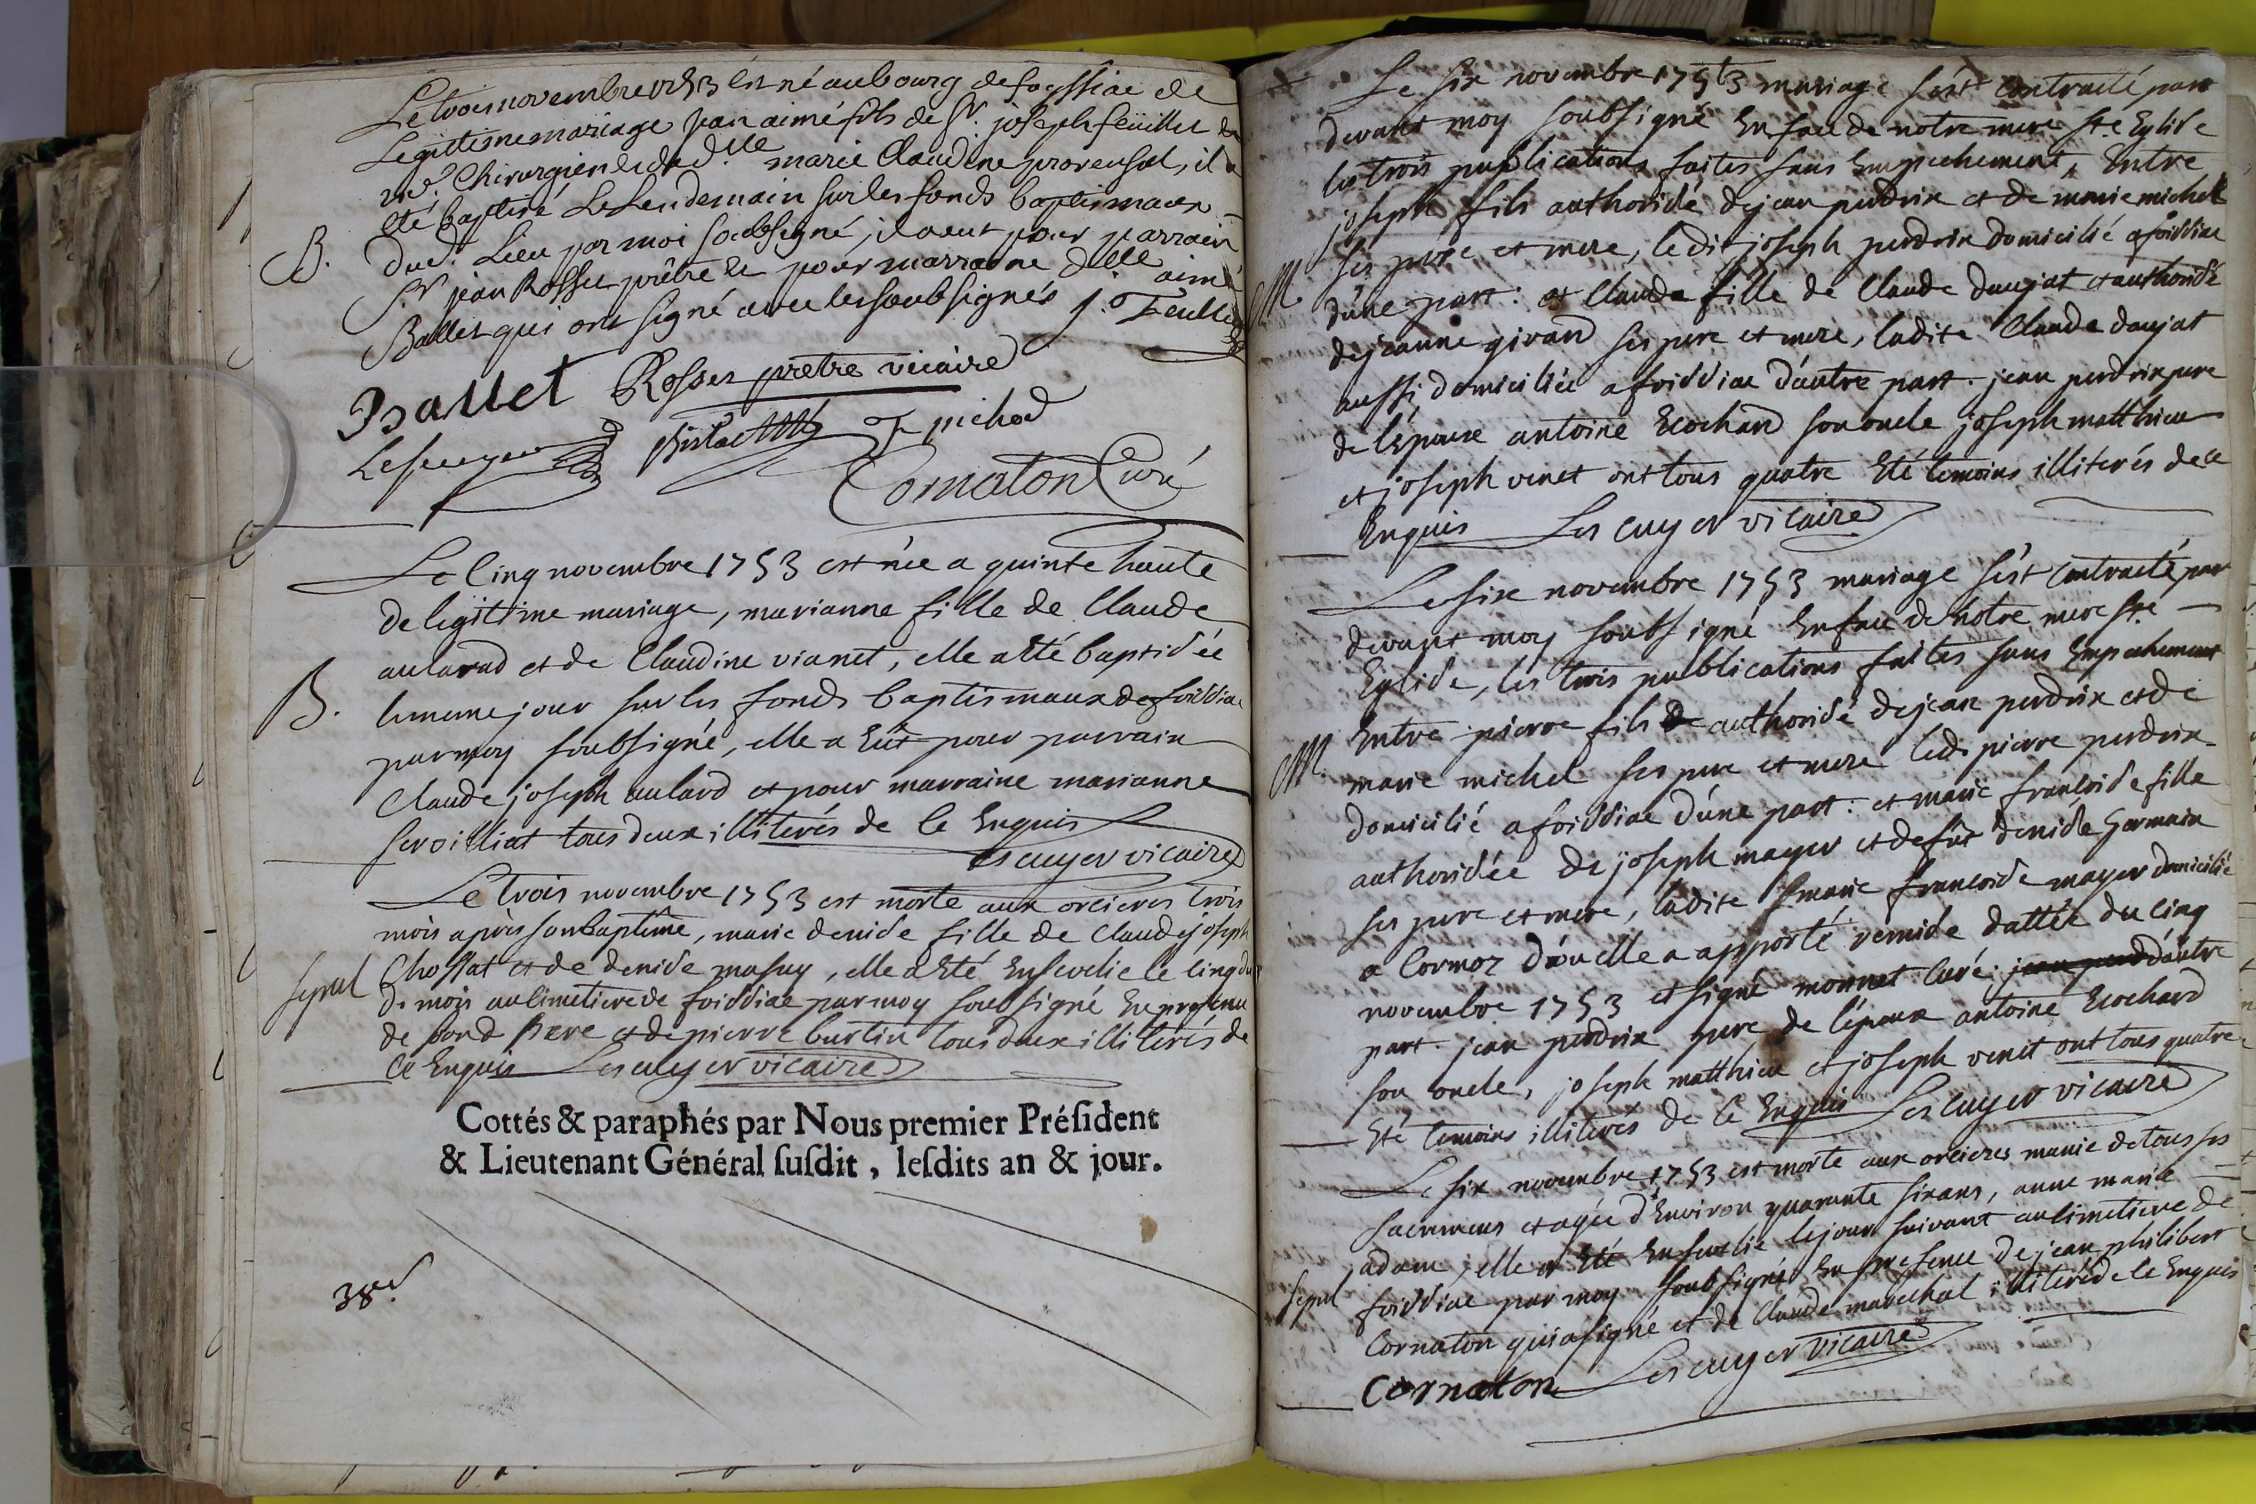 Le trois novembre 1753 est né au bourg de foyssiac de
Legitime mariage jean aimé fils de Sr. joseph feüillet
chirurgien et de d.lle marie Claudine provensal, il a
été baptisé Le Lendemain sur les fonds baptismaux
B. dud. Lieu par moi soubsigné, il a eut pour parrain
Sr jean Rosset prêtre et pour marraine dlle aimé
Ballet qui ont signé avec les soubsignés J. Feuillet
Ballet Rosset prêtre vicaire
Lescuyer pichod
Cornaton Curé
Le Cinq novembre 1753 est née a quinte haute
de legitime mariage, marianne fille de Claude
aularad et de Claudine vianet, elle a été baptisée
B. le meme jour sur les fonds baptismaux de foissiac
par moy soubsigné, elle a Eüt pour parrain
Claude joseph aulard et pour marraine marianne
servilliat tous deux illiterés de ce Enquis
Lescuyer vicaire
Le trois novembre 1753 est morte aux orcieres trois
mois après son baptême, marie denise fille de Claude joseph
Sepul Chossat et de denise masuy, elle a Eté Ensevelie le cinq du
d. mois au cimetiere de foissiac par moy soubsigné En presence
de son d. Pere et de pierre burtin tous deux illiterés de
ce Enquis Lescuyer vicaire
Cottés & paraphés par Nous premier Préſident
& Lieutenant Général ſuſdit, leſdits an & jour.
38e.
Le six novembre 1753 mariage s'est contracté par
devant moy soubsigné En face de notre mere Ste Eglise
les trois publications faites sans Empechement, Entre
joseph fils authorisé de jean perdrix et de marie michel
ses pere et mere, ledit joseph perdrix domicilié a foissiac
M. d'une part: et Claude fille de Claude daujat et authorisé
de jeanne girard ses pere et mere, ladite Claude daujat
aussi domiciliée a foissiac d'autre part. jean perdrix pere
de l'époux antoine Ecochard son oncle joseph matthieu
et joseph venet ont tous quatre Eté temoins illiterés de ce
Enquis Lescuyer vicaire
Le six novembre 1753 mariage s'est Contracté par
devant moy soubsigné En face de notre mere Ste
Eglise, les trois publications faites sans Empechement
Entre pierre fils de authorisé de jean perdrix et de
M. marie michel ses pere et mere led. pierre perdrix
domicilié a foissiac d'une part: et marie françoise fille
authorisée de joseph mayer et de fut denise Germain
ses pere et mere, ladite marie francoise mayer domiciliée
a Cormoz d'ou elle a apporté remise dattée du cinq
novembre 1753 et signé monnet Curé. jean perd d'autre
part jean perdrix pere de l'époux antoine Ecochard
son oncle, joseph matthieu et joseph venet ont tous quatre
Eté temoins illiterés de ce Enquis Lescuyer vicaire
Le six novembre 1753 est morte aux orcieres munie de tous ses
sacremens et agée d'Environ quarante six ans, anne marie
adam, elle a Eté Ensevelie le jour suivant au cimetiere de
Sepul foissiac par moy soubsigné En presence de jean philibert
Cornaton qui a signé et de Claude marechal illiteré de ce Enquis
Cornaton Lescuyer vicaire